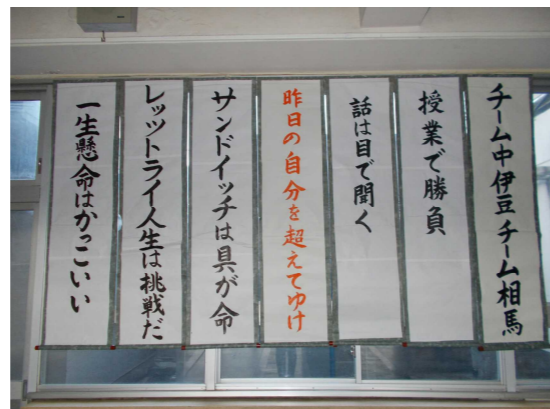 チーム中伊豆チーム相馬
授業で勝負
話は目で聞く
昨日の自分を超えてゆけ
サンドイッチは具が命
レッツトライ人生は挑戦だ
一生懸命はかっこいい